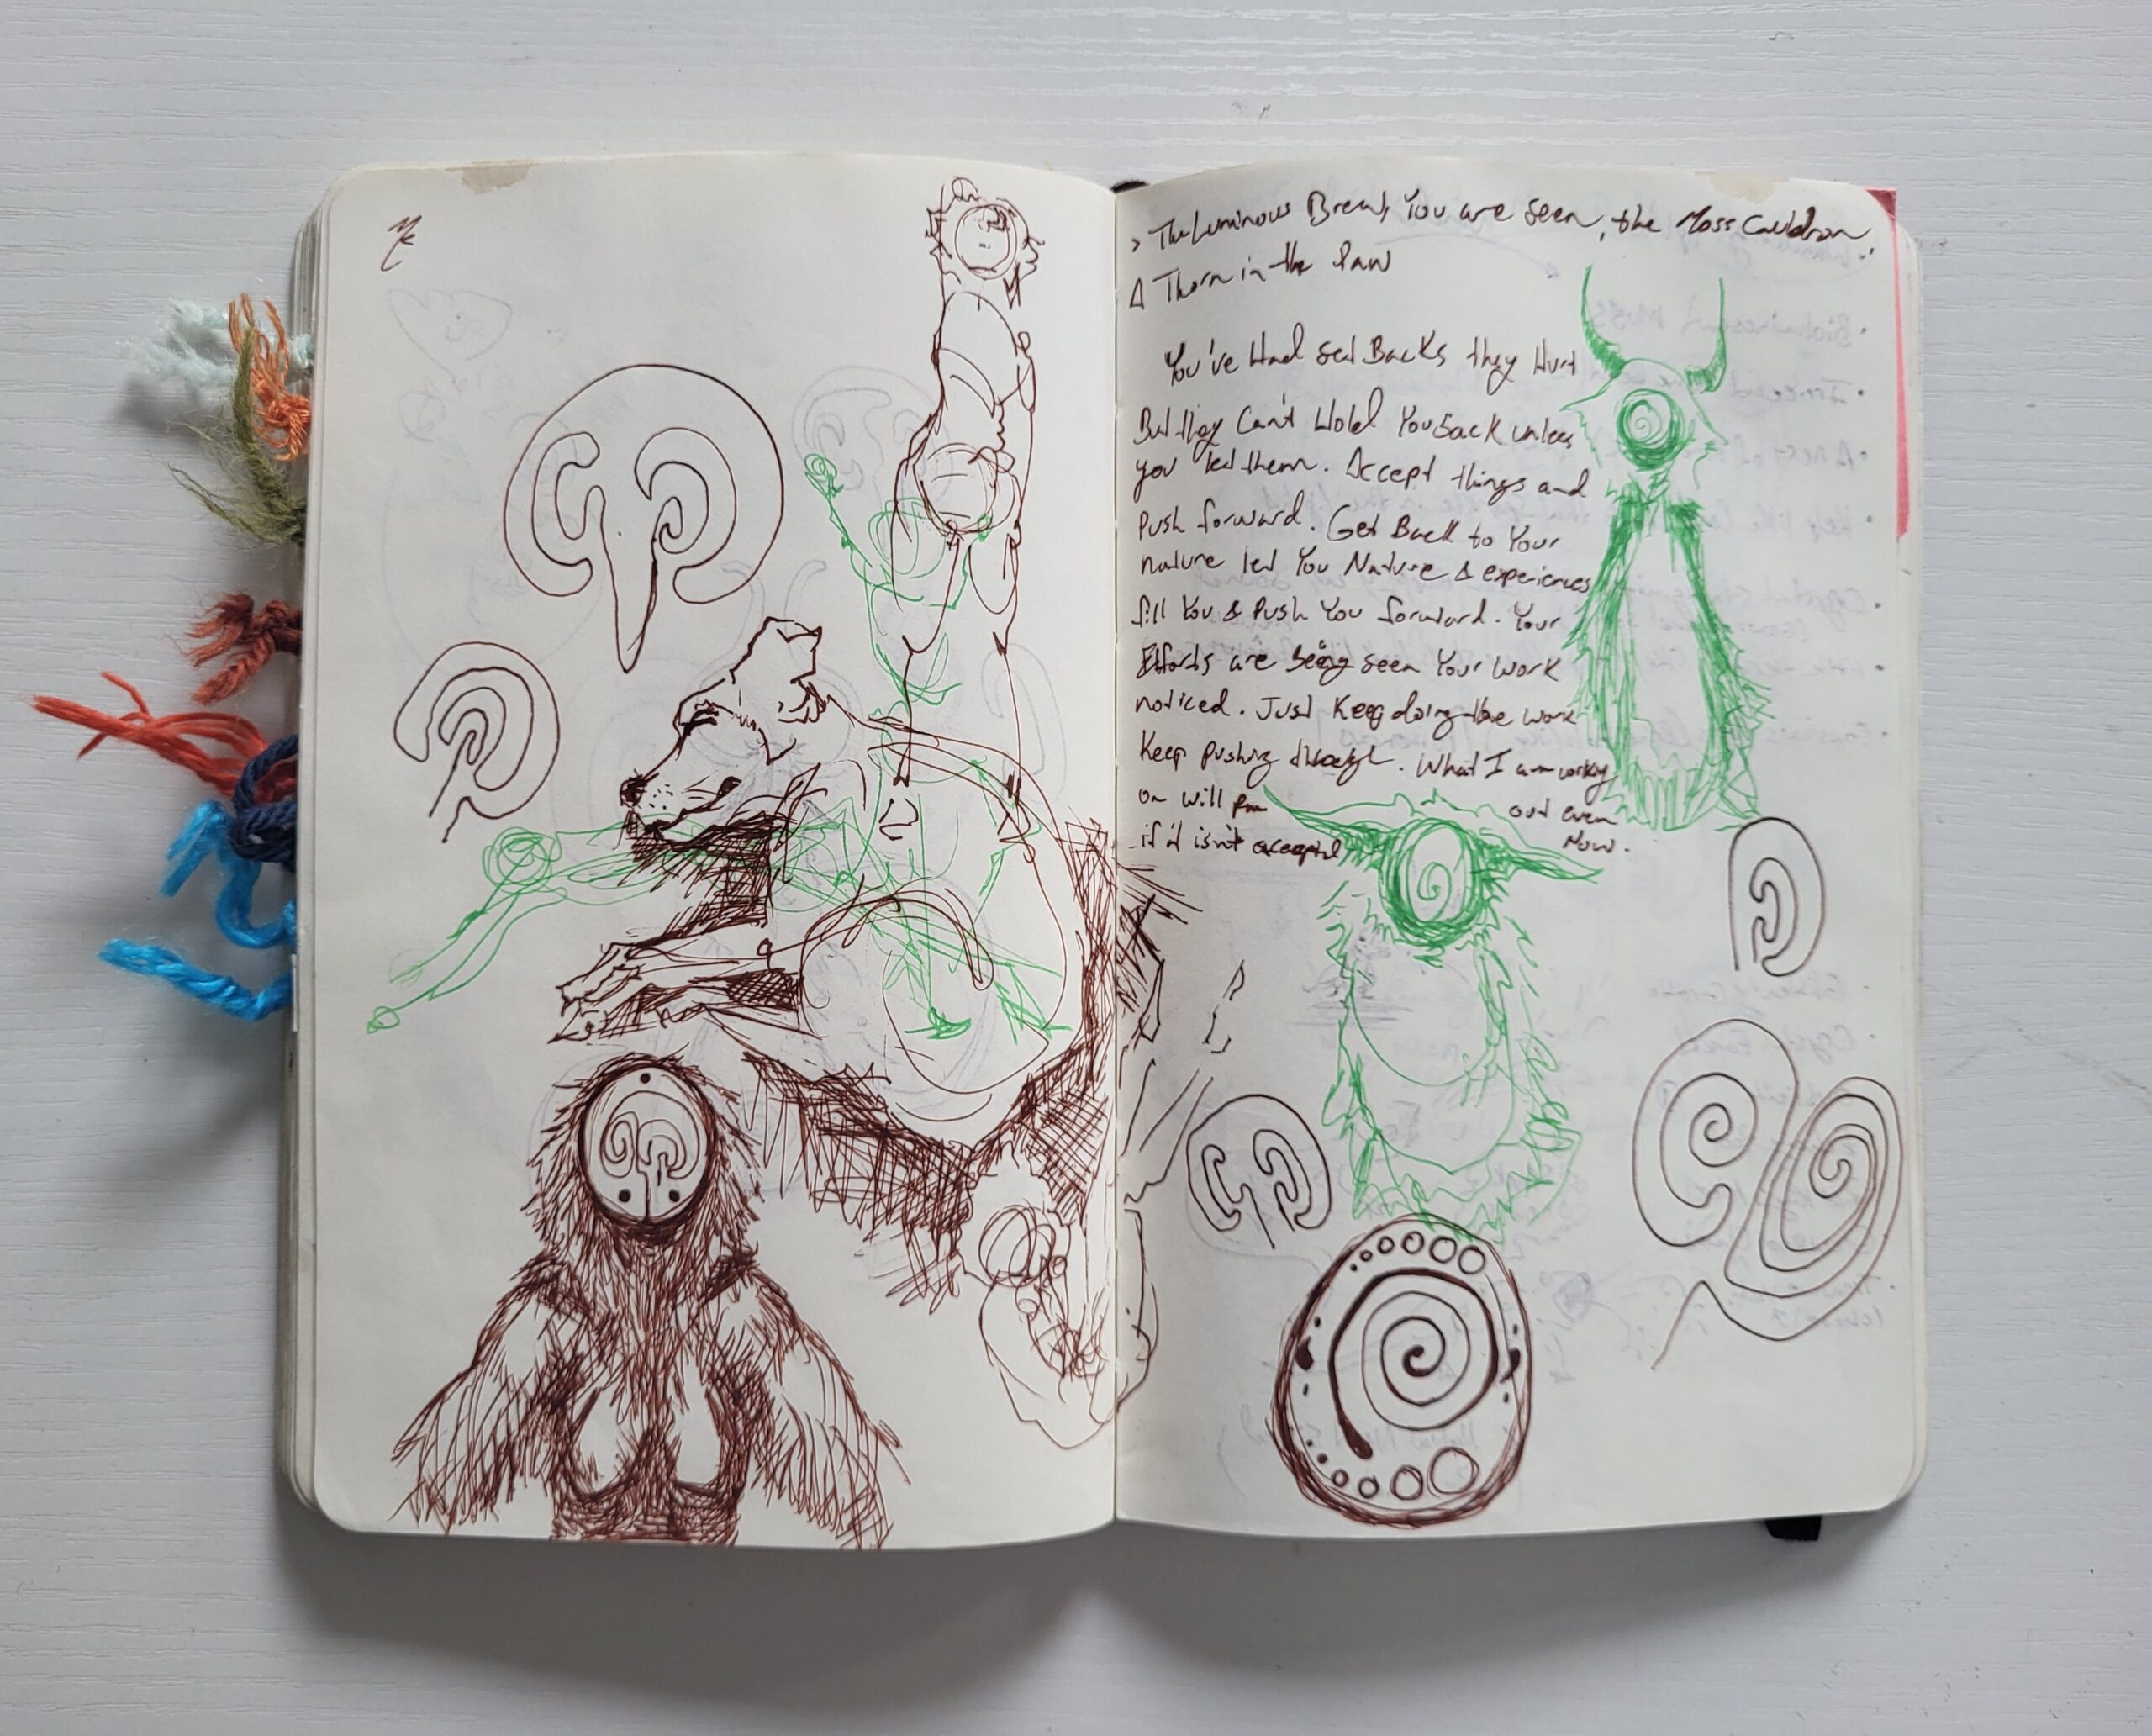 > The Luminous Brew, You are seen, the Moss Cauldron,
A Thorn in the Paw
You've Had Set Backs they Hurt
But they Can't Hold You Back unless
you let them. Accept things and
Push forward. Get Back to Your
nature let You Nature & experiences
fill You & Push You forward. Your
Efforts are being seen Your Work
noticed. Just Keep doing the work
Keep pushing through. What I am working
on will pan out even
if it isn't accepted Now.